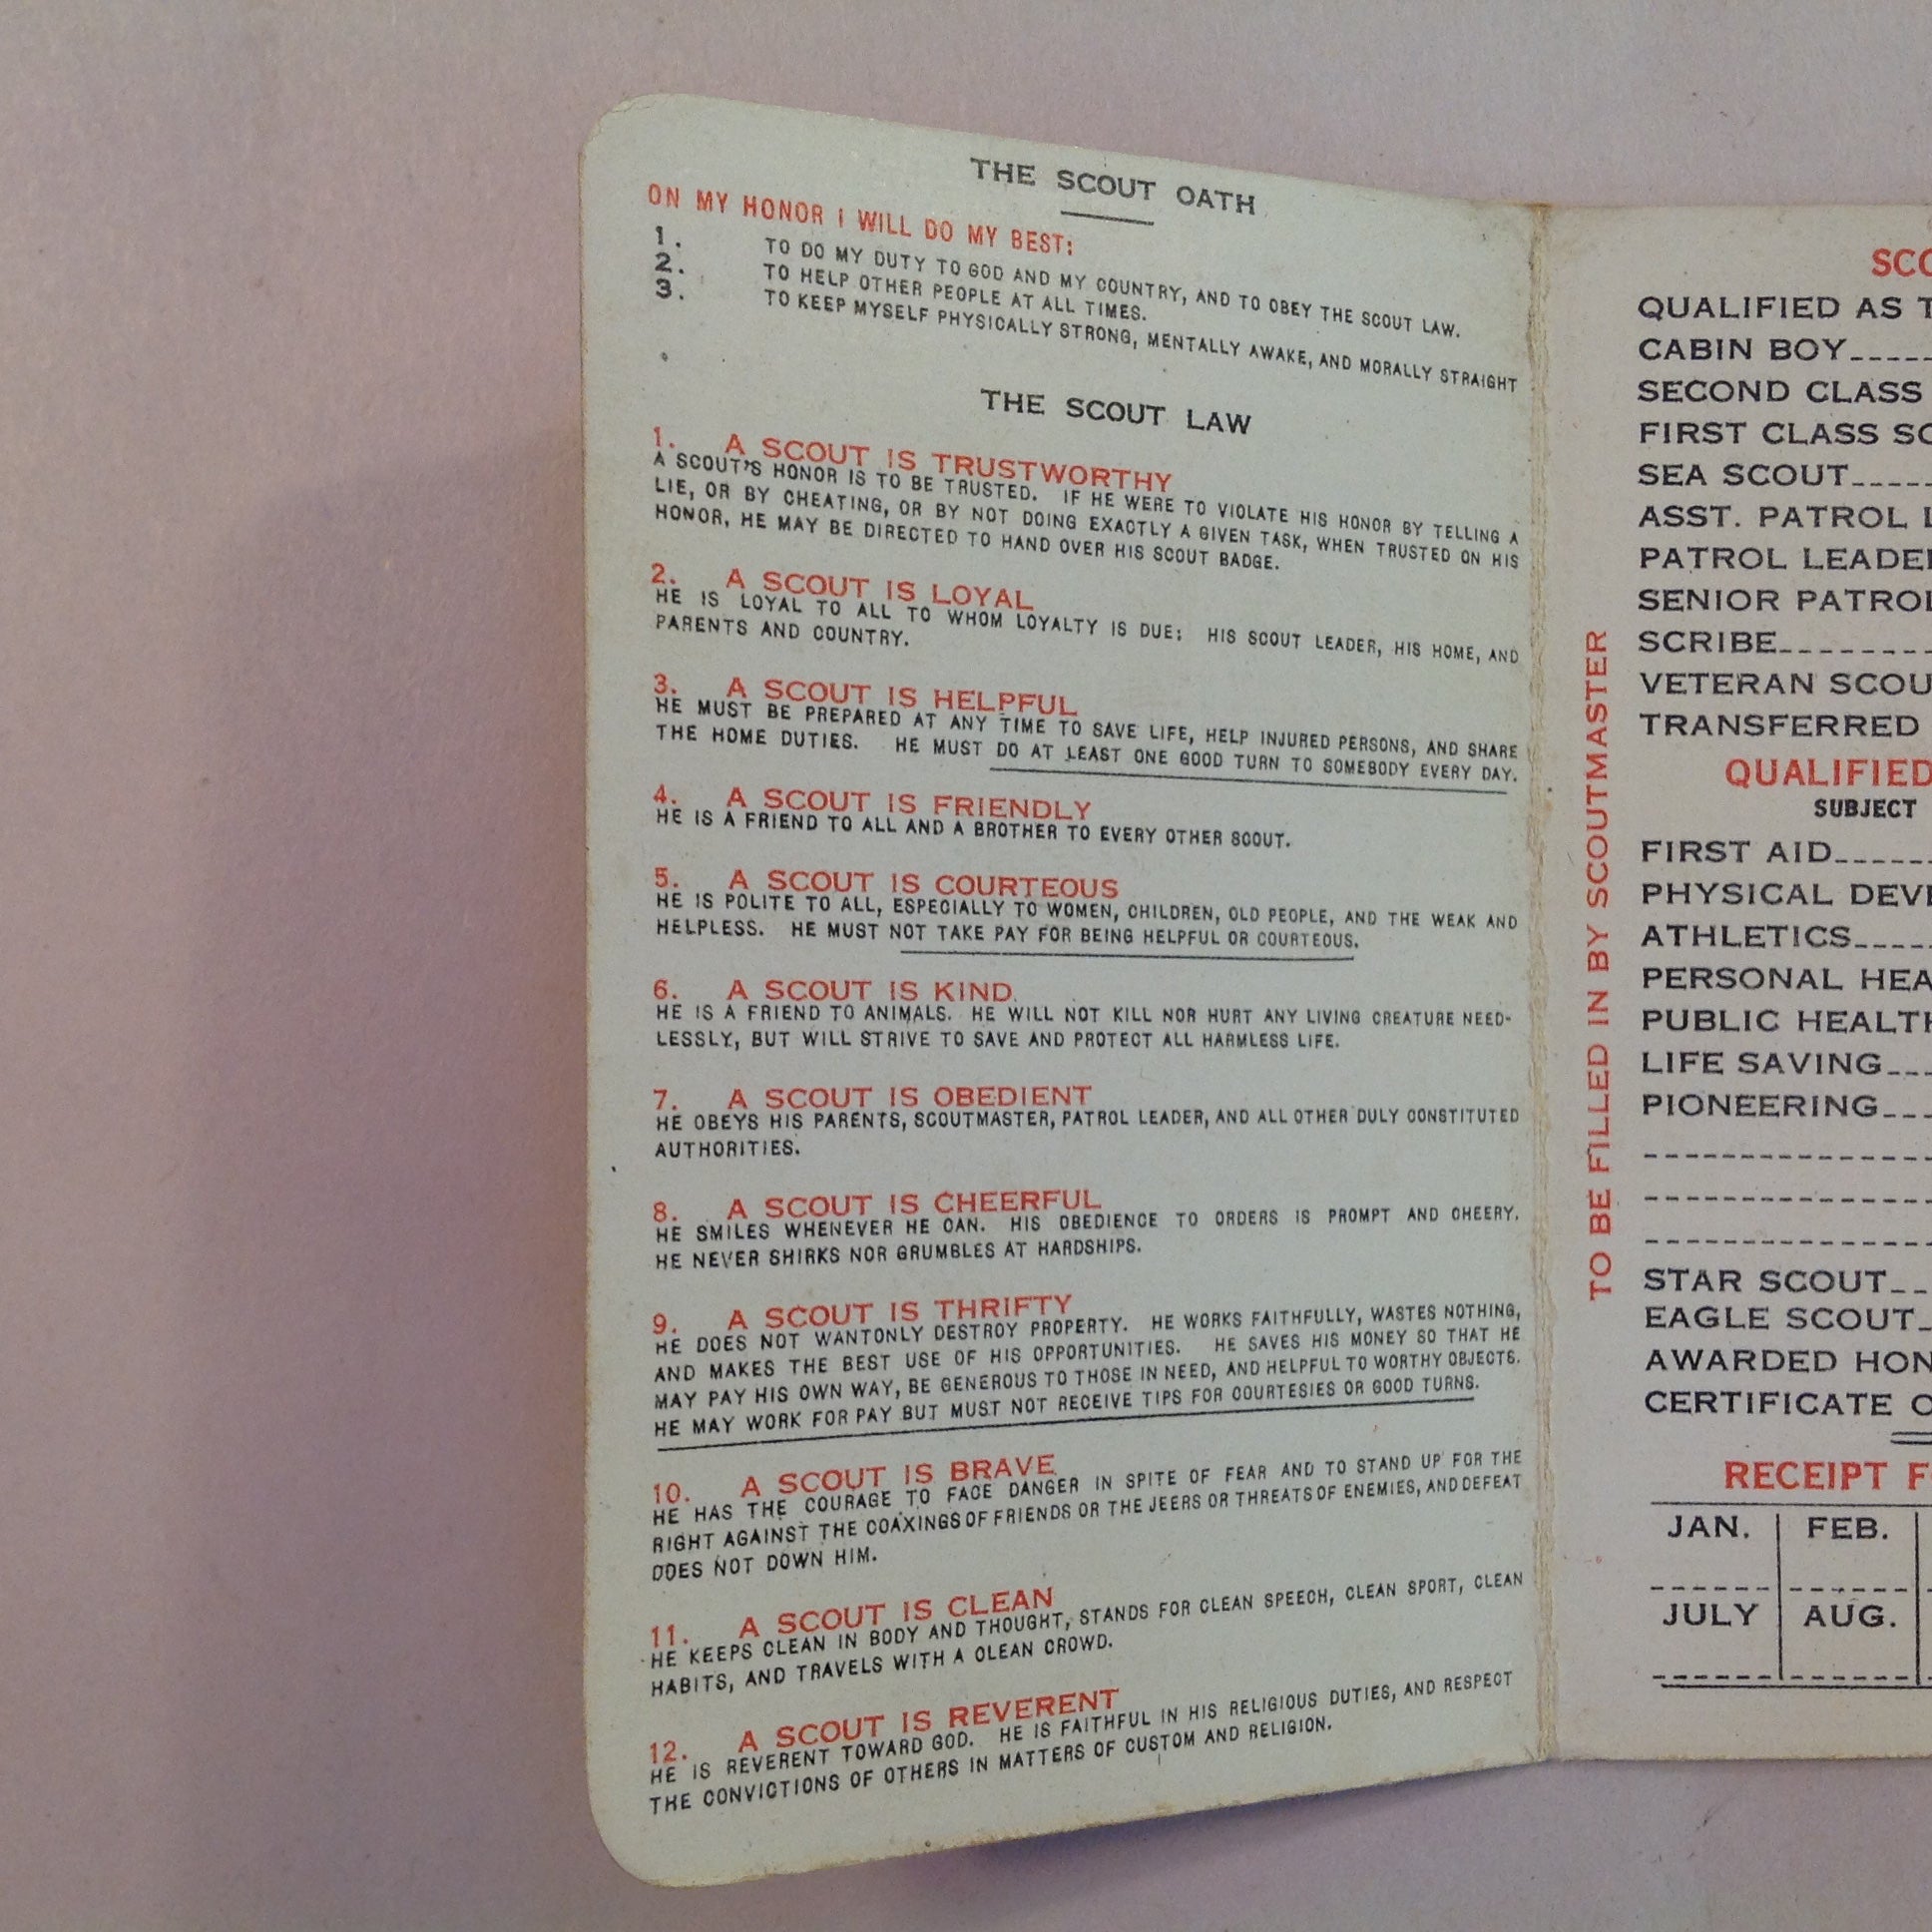 THE SCOUT OATH
ON MY HONOR I WILL DO MY BEST:
1. TO DO MY DUTY TO GOD AND MY COUNTRY, AND TO OBEY THE SCOUT LAW.
2. TO HELP OTHER PEOPLE AT ALL TIMES.
3. TO KEEP MYSELF PHYSICALLY STRONG, MENTALLY AWAKE, AND MORALLY STRAIGHT
THE SCOUT LAW
1. A SCOUT IS TRUSTWORTHY
A SCOUT'S HONOR IS TO BE TRUSTED. IF HE WERE TO VIOLATE HIS HONOR BY TELLING A
LIE, OR BY CHEATING, OR BY NOT DOING EXACTLY A GIVEN TASK, WHEN TRUSTED ON HIS
HONOR, HE MAY BE DIRECTED TO HAND OVER HIS SCOUT BADGE.
2. A SCOUT IS LOYAL
HE IS LOYAL TO ALL TO WHOM LOYALTY IS DUE: HIS SCOUT LEADER, HIS HOME, AND
PARENTS AND COUNTRY.
3. A SCOUT IS HELPFUL
HE MUST BE PREPARED AT ANY TIME TO SAVE LIFE, HELP INJURED PERSONS, AND SHARE
THE HOME DUTIES. HE MUST DO AT LEAST ONE GOOD TURN TO SOMEBODY EVERY DAY.
4. A SCOUT IS FRIENDLY
HE IS A FRIEND TO ALL AND A BROTHER TO EVERY OTHER SCOUT.
5. A SCOUT IS COURTEOUS
HE IS POLITE TO ALL, ESPECIALLY TO WOMEN, CHILDREN, OLD PEOPLE, AND THE WEAK AND
HELPLESS. HE MUST NOT TAKE PAY FOR BEING HELPFUL OR COURTEOUS.
6. A SCOUT IS KIND
HE IS A FRIEND TO ANIMALS. HE WILL NOT KILL NOR HURT ANY LIVING CREATURE NEED-
LESSLY, BUT WILL STRIVE TO SAVE AND PROTECT ALL HARMLESS LIFE.
7. A SCOUT IS OBEDIENT
HE OBEYS HIS PARENTS, SCOUTMASTER, PATROL LEADER, AND ALL OTHER DULY CONSTITUTED
AUTHORITIES.
8. A SCOUT IS CHEERFUL
HE SMILES WHENEVER HE CAN. HIS OBEDIENCE TO ORDERS IS PROMPT AND CHEERY.
HE NEVER SHIRKS NOR GRUMBLES AT HARDSHIPS.
9. A SCOUT IS THRIFTY
HE DOES NOT WANTONLY DESTROY PROPERTY. HE WORKS FAITHFULLY, WASTES NOTHING,
AND MAKES THE BEST USE OF HIS OPPORTUNITIES. HE SAVES HIS MONEY SO THAT HE
MAY PAY HIS OWN WAY, BE GENEROUS TO THOSE IN NEED, AND HELPFUL TO WORTHY OBJECTS.
HE MAY WORK FOR PAY BUT MUST NOT RECEIVE TIPS FOR COURTESIES OR GOOD TURNS.
10. A SCOUT IS BRAVE
HE HAS THE COURAGE TO FACE DANGER IN SPITE OF FEAR AND TO STAND UP FOR THE
RIGHT AGAINST THE COAXINGS OF FRIENDS OR THE JEERS OR THREATS OF ENEMIES, AND DEFEAT
DOES NOT DOWN HIM.
11. A SCOUT IS CLEAN
HE KEEPS CLEAN IN BODY AND THOUGHT, STANDS FOR CLEAN SPEECH, CLEAN SPORT, CLEAN
HABITS, AND TRAVELS WITH A CLEAN CROWD.
12. A SCOUT IS REVERENT
HE IS REVERENT TOWARD GOD. HE IS FAITHFUL IN HIS RELIGIOUS DUTIES, AND RESPECT
THE CONVICTIONS OF OTHERS IN MATTERS OF CUSTOM AND RELIGION.
TO BE FILLED IN BY SCOUTMASTER
SCO
QUALIFIED AS T
CABIN BOY
SECOND CLASS
FIRST CLASS SC
SEA SCOUT
ASST. PATROL L
PATROL LEADER
SENIOR PATROL
SCRIBE
VETERAN SCOU
TRANSFERRED
QUALIFIED
SUBJECT
FIRST AID
PHYSICAL DEVE
ATHLETICS
PERSONAL HEA
PUBLIC HEALTH
LIFE SAVING
PIONEERING
STAR SCOUT
EAGLE SCOUT
AWARDED HON
CERTIFICATE O
RECEIPT F
JAN. FEB.
JULY AUG.